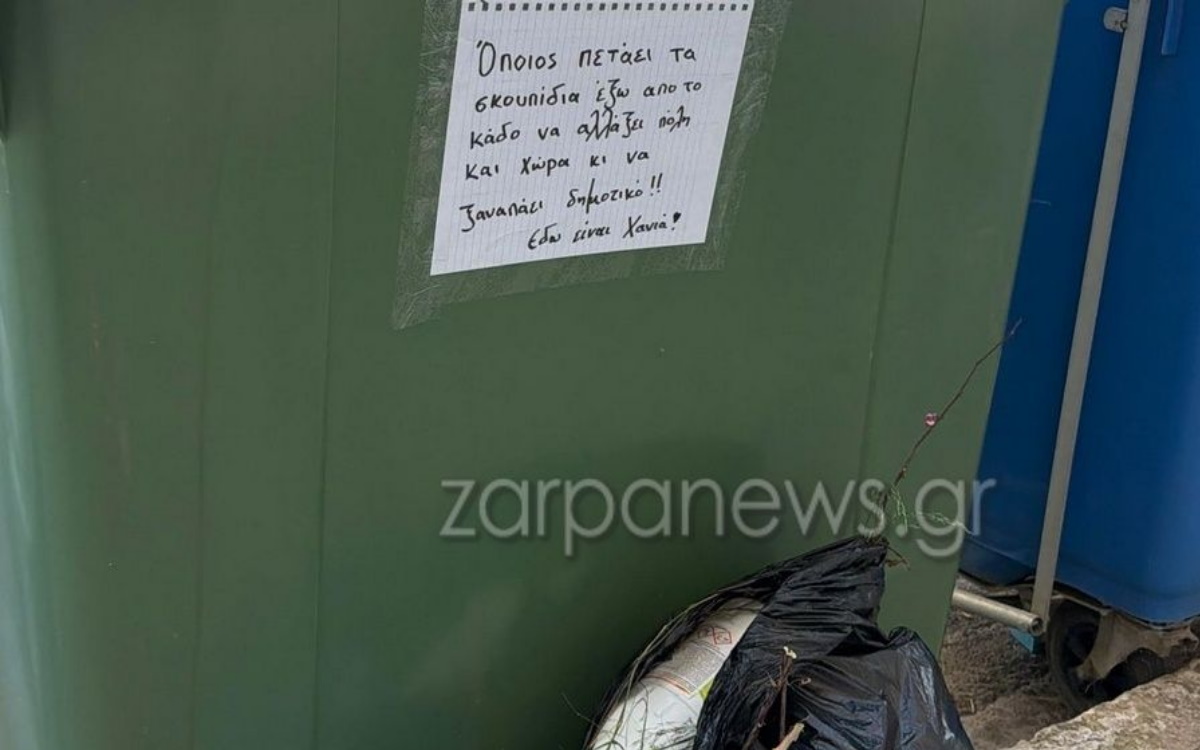 Όποιος πετάει τα
σκουπίδια έξω απο το
κάδο να αλλάξει πόλη
και χώρα κι να
ξαναπάει δημοτικό!!
Εδω είναι Χανιά!
zarpanews.gr